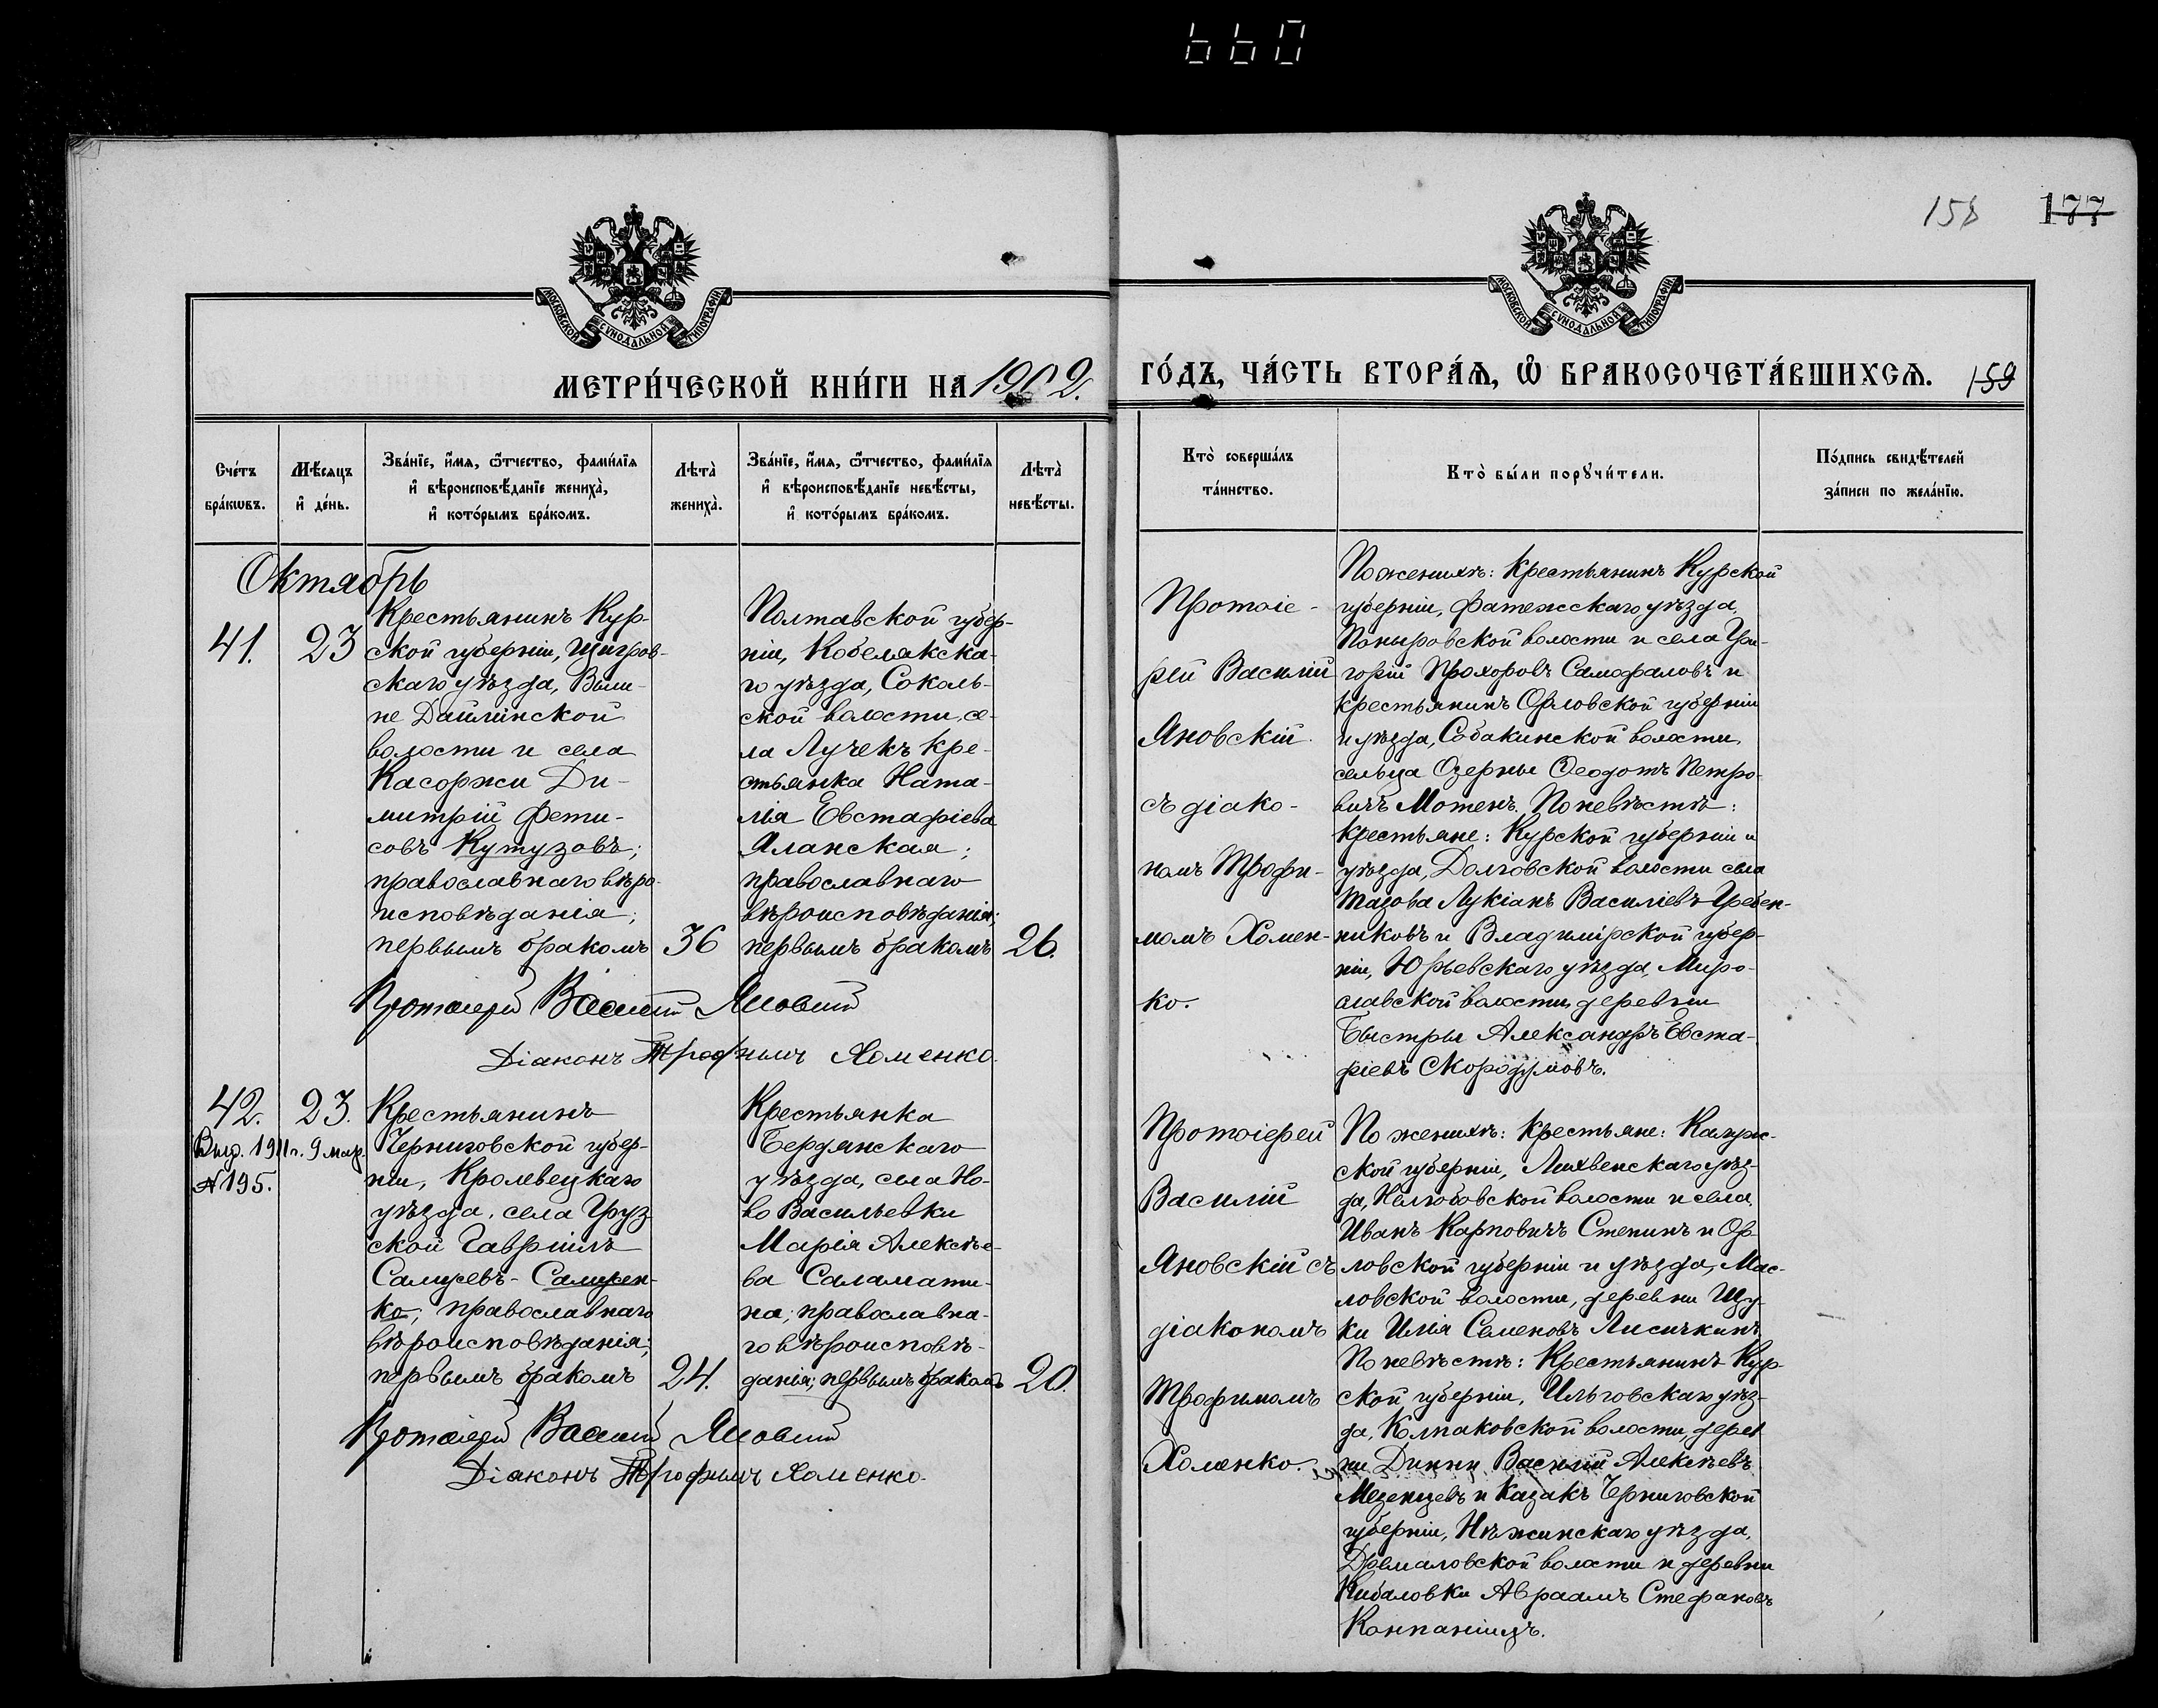 660
158 177
МОСКОВСКОЙ СУНОДАЛЬНОЙ ТИПОГРАФІИ
МОСКОВСКОЙ СУНОДАЛЬНОЙ ТИПОГРАФІИ
МЕТРИ́ЧЕСКОЙ КНИ́ГИ НА 1902.
ГО́ДЪ, ЧА́СТЬ ВТОРА́Ѧ, Ѽ БРАКОСОЧЕТА́ВШИХСѦ. 159
Сче́тъ бра́кѡвъ.
Мѣ́сяцъ и҆ де́нь.
Зва́нїе, и҆́мѧ, ѻ҆́тчество, фами́лїѧ
и҆ вѣроисповѣ́данїе жениха̀,
и҆ кото́рымъ бра́комъ.
Лѣта̀ жениха̀.
Зва́нїе, и҆́мѧ, ѻ҆́тчество, фами́лїѧ
и҆ вѣроисповѣ́данїе невѣ́сты,
и҆ кото́рымъ бра́комъ.
Лѣта̀ невѣ́сты.
Кто̀ соверша́лъ
та́инство.
Кто̀ бы́ли порꙋчи́тели.
По́дпись свидѣ́телей
за́писи по жела́нїю.
Октябрь
41.
23
Крестьянинъ Кур-
ской губерніи, Щигров-
скаго уѣзда, Выш-
не Дайминской
волости и села
Касоржи Ди-
митрій Фети-
совъ Кутузовъ;
православнаго вѣро-
исповѣданія;
первымъ бракомъ
36
Полтавской губер-
ніи, Кобелякска-
го уѣзда, Соколь-
ской волости, се-
ла Лучекъ кре-
стьянка Ната-
лія Евстафіева
Яланская;
православнаго
вѣроисповѣданія;
первымъ бракомъ
26.
Протоіе-
рей Василій
Яновскій
съ діако-
номъ Трофи-
момъ Хомен-
ко.
По женихѣ: крестьянинъ Курской
губерніи, Фатежскаго уѣзда,
Поныровской волости и села Гри-
горій Прохоровъ Самофаловъ и
крестьянинъ Орловской губерніи
и уѣзда, Собакинской волости,
сельца Озерны Ѳеодотъ Петро-
вичъ Мотенъ. По невѣстѣ:
крестьяне: Курской губерніи и
уѣзда, Долговской волости села
Тазова Лукіанъ Василіевъ Гребен-
никовъ и Владимірской губер-
ніи, Юрьевскаго уѣзда, Миро-
славской волости, деревни
Быстры Александръ Евста-
фіевъ Скородумовъ.
Протоіерей Василій Яновскій
Діаконъ Трофимъ Хоменко.
42.
23.
Выд. 1911 г. 9 мар.
№195.
Крестьянинъ
Черниговской губер-
ніи, Кролевецкаго
уѣзда, села Груз-
ской Гавріилъ
православнаго
вѣроисповѣданія;
первымъ бракомъ
24.
Крестьянка
Бердянскаго
уѣзда, села Но-
во Васильевки
Марія Алексѣе-
ва Саламати-
на; православна-
го вѣроисповѣ-
данія; первымъ бракомъ
20.
Протоіерей
Василій
Яновскій съ
діакономъ
Трофимомъ
Хоменко.
По женихѣ: крестьяне: Калуж-
ской губерніи, Лихвенскаго уѣз-
да, волости и села
Иванъ Карповичъ Степинъ и Ор-
ловской губерніи и уѣзда, Мас-
ловской волости, деревни Щу-
ки Илія Семеновъ Лисичкинъ
По невѣстѣ: Крестьянинъ Кур-
ской губерніи, Льговскаго уѣз-
да, Колпаковской волости, дерев-
ни Василій Алексѣевъ
Мезенцевъ и казакъ Черниговской
губерніи, Нѣжинскаго уѣзда,
Дремаловской волости и деревни
Авраамъ Стефановъ
Компаніецъ.
Протоіерей Василій Яновскій
Діаконъ Трофимъ Хоменко.